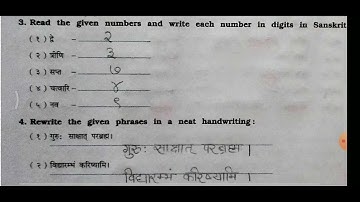 3. Read the given numbers and write each number in digits in Sanskrit
(१) द्वे – २
(२) त्रीणि – ३
(३) सप्त – ७
(४) चत्वारि – ४
(५) नव – ९
4. Rewrite the given phrases in a neat handwriting:
(१) गुरुः साक्षात् परब्रह्म।
गुरुः साक्षात् परब्रह्म।
(२) विद्यारम्भं करिष्यामि।
विद्यारम्भं करिष्यामि।